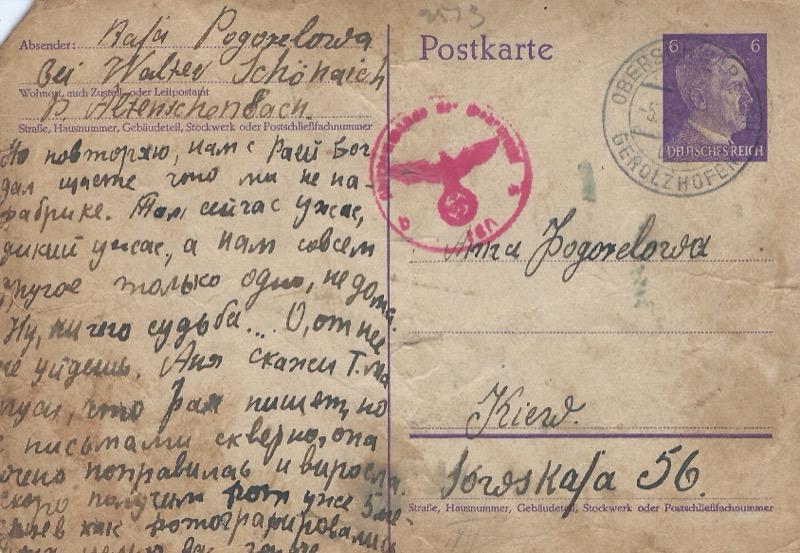 2573
Absender: Kasa Pogorelowa
bei Walter Schönaich
Wohnort, auch Zustell- oder Leitpostamt
P. Altenschönbach.
Straße, Hausnummer, Gebäudeteil, Stockwerk oder Postschließfachnummer
Но повторяю, нам с Раей Бог
дал щастє что ми не на
фабрике. Там сейчас ужас,
дикий ужас, а нам совсем
другое только одно, не дома.
Ну, ничего судьба... О, от неё
не уйдешь. Аня скажи Т.
что Рая пишет, но
с письмами скверно, она
очень поправилась и виросла.
скоро получим фот уже 5 ме-
сяцев как фотографировались
Postkarte
6 6
DEUTSCHES REICH
GEROLZHOFEN
Anna Pogorelowa
Kiew.
Sowskaja 56.
Straße, Hausnummer, Gebäudeteil, Stockwerk oder Postschließfachnummer